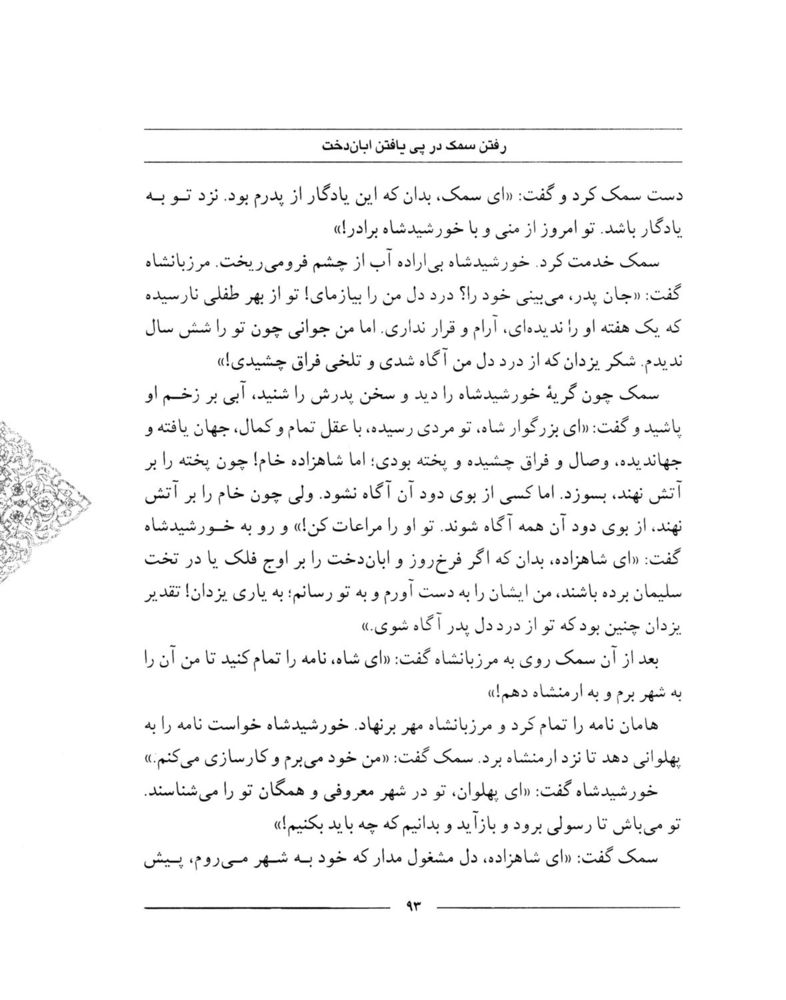 رفتن سمک در پی یافتن ابان‌دخت
دست سمک کرد و گفت: «ای سمک، بدان که این یادگار از پدرم بود. نزد تو به
یادگار باشد. تو امروز از منی و با خورشیدشاه برادر!»
سمک خدمت کرد. خورشیدشاه بی‌اراده آب از چشم فرومی‌ریخت. مرزبانشاه
گفت: «جان پدر، می‌بینی خود را؟ درد دل من را بیازمای! تو از بهر طفلی نارسیده
که یک هفته او را ندیده‌ای، آرام و قرار نداری. اما من جوانی چون تو را شش سال
ندیدم. شکر یزدان که از درد دل من آگاه شدی و تلخی فراق چشیدی!»
سمک چون گریهٔ خورشیدشاه را دید و سخن پدرش را شنید، آبی بر زخم او
پاشید و گفت: «ای بزرگوار شاه، تو مردی رسیده، با عقل تمام و کمال، جهان یافته و
جهاندیده، وصال و فراق چشیده و پخته بودی؛ اما شاهزاده خام! چون پخته را بر
آتش نهند، بسوزد. اما کسی از بوی دود آن آگاه نشود. ولی چون خام را بر آتش
نهند، از بوی دود آن همه آگاه شوند. تو او را مراعات کن!» و رو به خورشیدشاه
گفت: «ای شاهزاده، بدان که اگر فرخ‌روز و ابان‌دخت را بر اوج فلک یا در تخت
سلیمان برده باشند، من ایشان را به دست آورم و به تو رسانم؛ به یاری یزدان! تقدیر
یزدان چنین بود که تو از درد دل پدر آگاه شوی.»
بعد از آن سمک روی به مرزبانشاه گفت: «ای شاه، نامه را تمام کنید تا من آن را
به شهر برم و به ارمنشاه دهم!»
هامان نامه را تمام کرد و مرزبانشاه مهر برنهاد. خورشیدشاه خواست نامه را به
پهلوانی دهد تا نزد ارمنشاه برد. سمک گفت: «من خود می‌برم و کارسازی می‌کنم.»
خورشیدشاه گفت: «ای پهلوان، تو در شهر معروفی و همگان تو را می‌شناسند.
تو می‌باش تا رسولی برود و بازآید و بدانیم که چه باید بکنیم!»
سمک گفت: «ای شاهزاده، دل مشغول مدار که خود به شهر می‌روم، پیش
۹۳